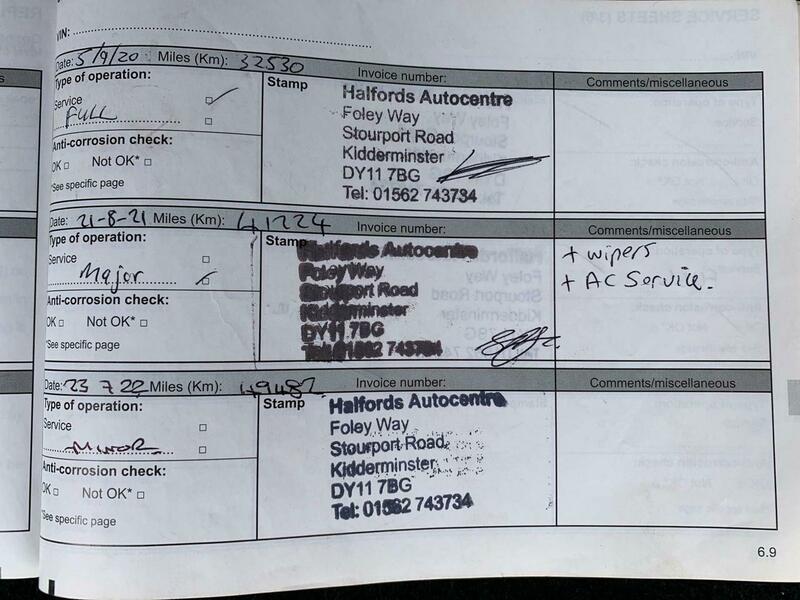 VIN:
Date: 5/9/20 Miles (Km): 32530 Invoice number: Comments/miscellaneous
Type of operation:
Service
FULL
Anti-corrosion check:
OK Not OK*
*See specific page
Stamp
Halfords Autocentre
Foley Way
Stourport Road
Kidderminster
DY11 7BG
Tel: 01562 743734
Date: 21-8-21 Miles (Km): 41224 Invoice number: Comments/miscellaneous
Type of operation:
Service
Major
Anti-corrosion check:
OK Not OK*
*See specific page
Stamp
Halfords Autocentre
Foley Way
Stourport Road
Kidderminster
DY11 7BG
Tel: 01562 743734
+ wipers
+ AC Service.
Date: 23 7 22 Miles (Km): 49487 Invoice number: Comments/miscellaneous
Type of operation:
Service
MINOR
Anti-corrosion check:
OK Not OK*
*See specific page
Stamp
Halfords Autocentre
Foley Way
Stourport Road
Kidderminster
DY11 7BG
Tel: 01562 743734
6.9